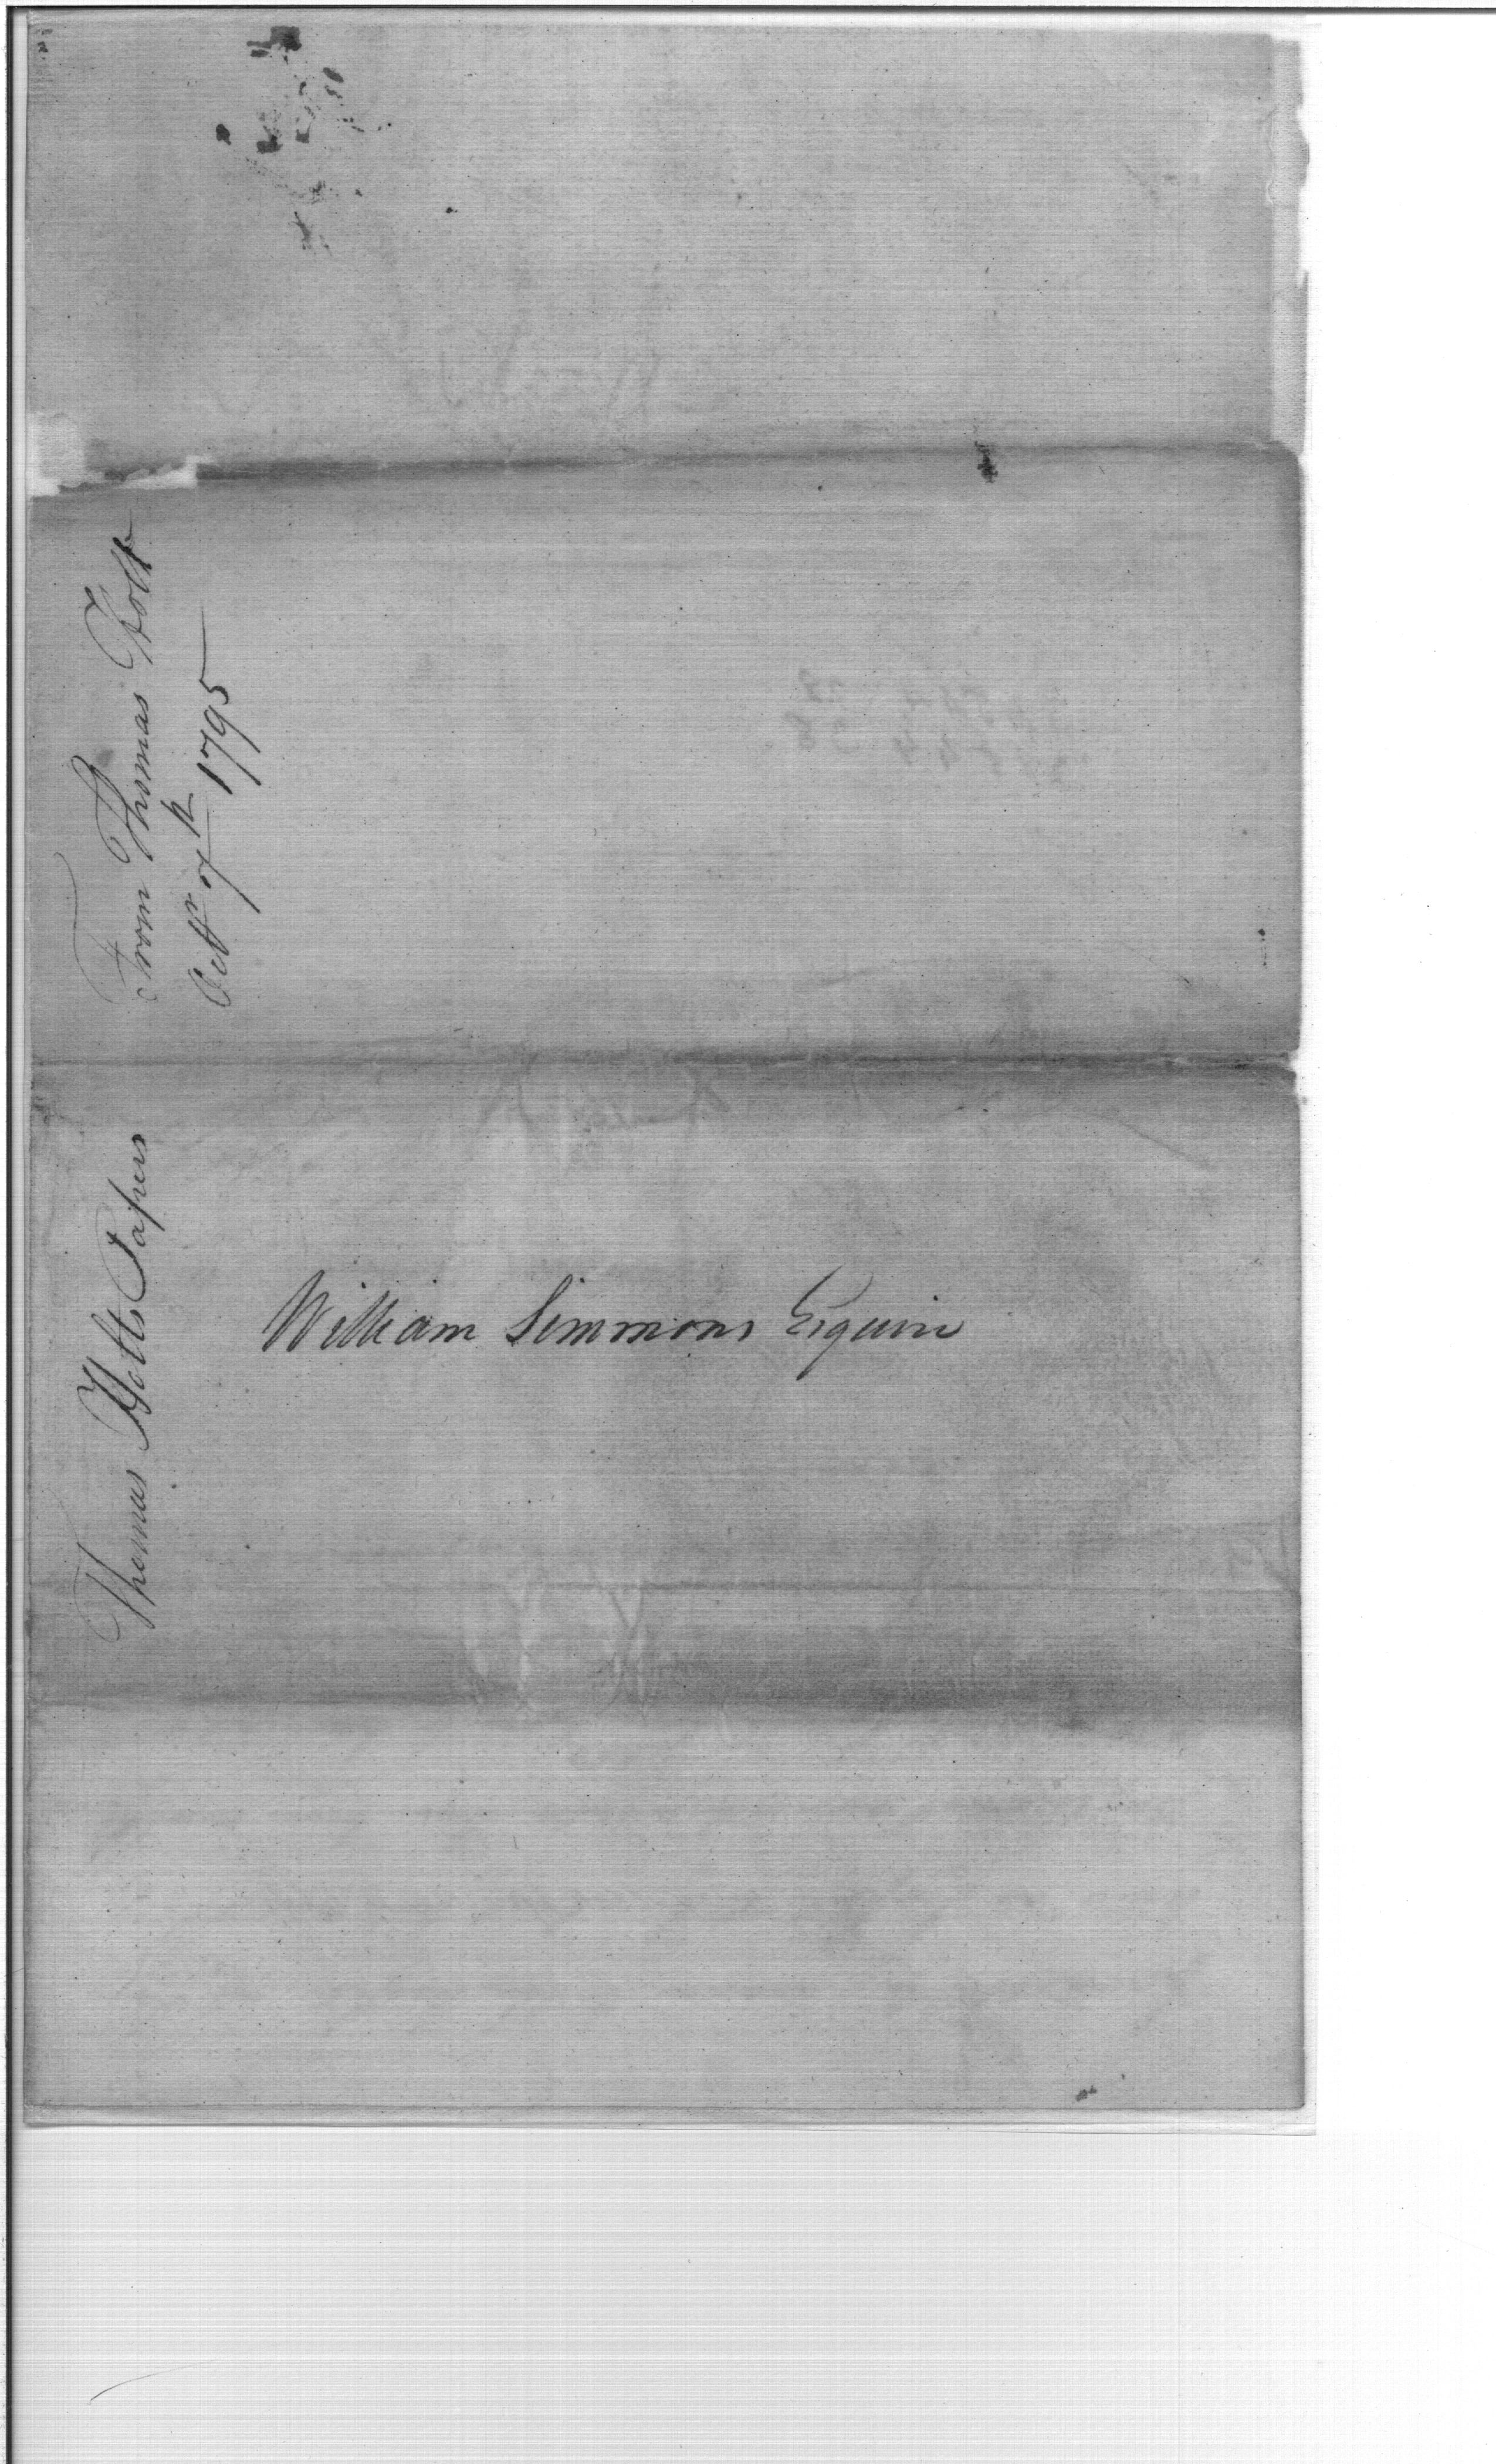 From Thomas Holt
Octr 7th 1795
Thomas Holts Papers
William Simmons Esquire